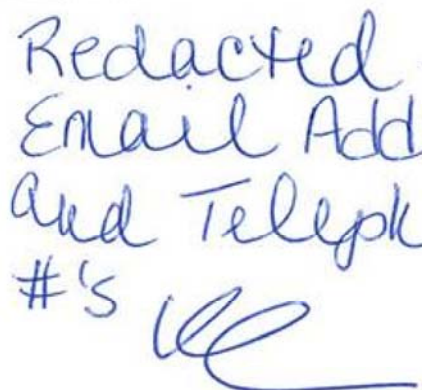 Redacted
Email Add
and Teleph
#'s